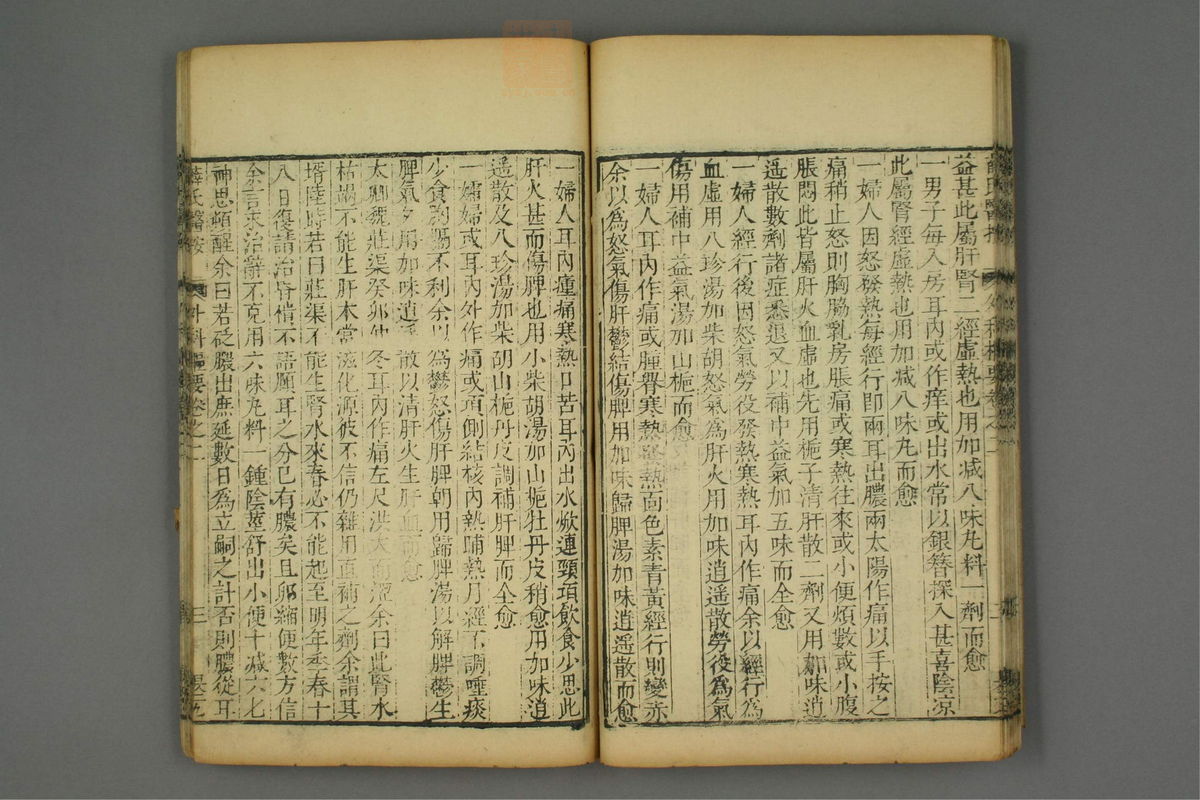 益甚此屬肝腎二經虛熱也用加减八味丸料一劑而愈
一男子每入房耳內或作痒或出水常以銀簪探入甚喜陰凉
此屬腎經虛熱也用加减八味丸而愈
一婦人因怒發熱每經行即兩耳出膿兩太陽作痛以手按之
痛稍止怒則胸脇乳房脹痛或寒熱往來或小便頻數或小腹
脹悶此皆屬肝火血虛也先用梔子清肝散二劑又用加味逍
遥散數劑諸症悉退又以補中益氣加五味而全愈
一婦人經行後因怒氣勞役發熱寒熱耳內作痛余以經行為
血虛用八珍湯加柴胡怒氣為肝火用加味逍遥散勞役為氣
傷用補中益氣湯加山梔而愈
一婦人耳內作痛或腫焮寒熱發熱面色素青黃經行則變赤
余以為怒氣傷肝鬱結傷脾用加味歸脾湯加味逍遥散而愈
一婦人耳內腫痛寒熱口苦耳內出水焮連頸項飲食少思此
肝火甚而傷脾也用小柴胡湯加山梔牡丹皮稍愈用加味逍
遥散及八珍湯加柴胡山梔丹皮調補肝脾而全愈
一孀婦或耳內外作痛或項側結核內熱晡熱月經不調唾痰
少食胸膈不利余以為鬱怒傷肝脾朝用歸脾湯以解脾鬱生
脾氣夕用加味逍遥散以清肝火生肝血而愈
太卿魏莊渠癸卯仲冬耳內作痛左尺洪大而濇余曰此腎水
枯竭不能生肝木當滋化源彼不信仍雜用直補之劑余謂其
壻陸時若曰莊渠不能生腎水來春必不能起至明年季春十
八日復請治昏憒不語頤耳之分已有膿矣且卵縮便數方信
余言求治辭不克用六味丸料一鍾陰莖舒出小便十减六七
神思頓醒余曰若砭膿出庶延數日為立嗣之計否則膿從耳
薛氏醫按 外科樞要卷之二 三